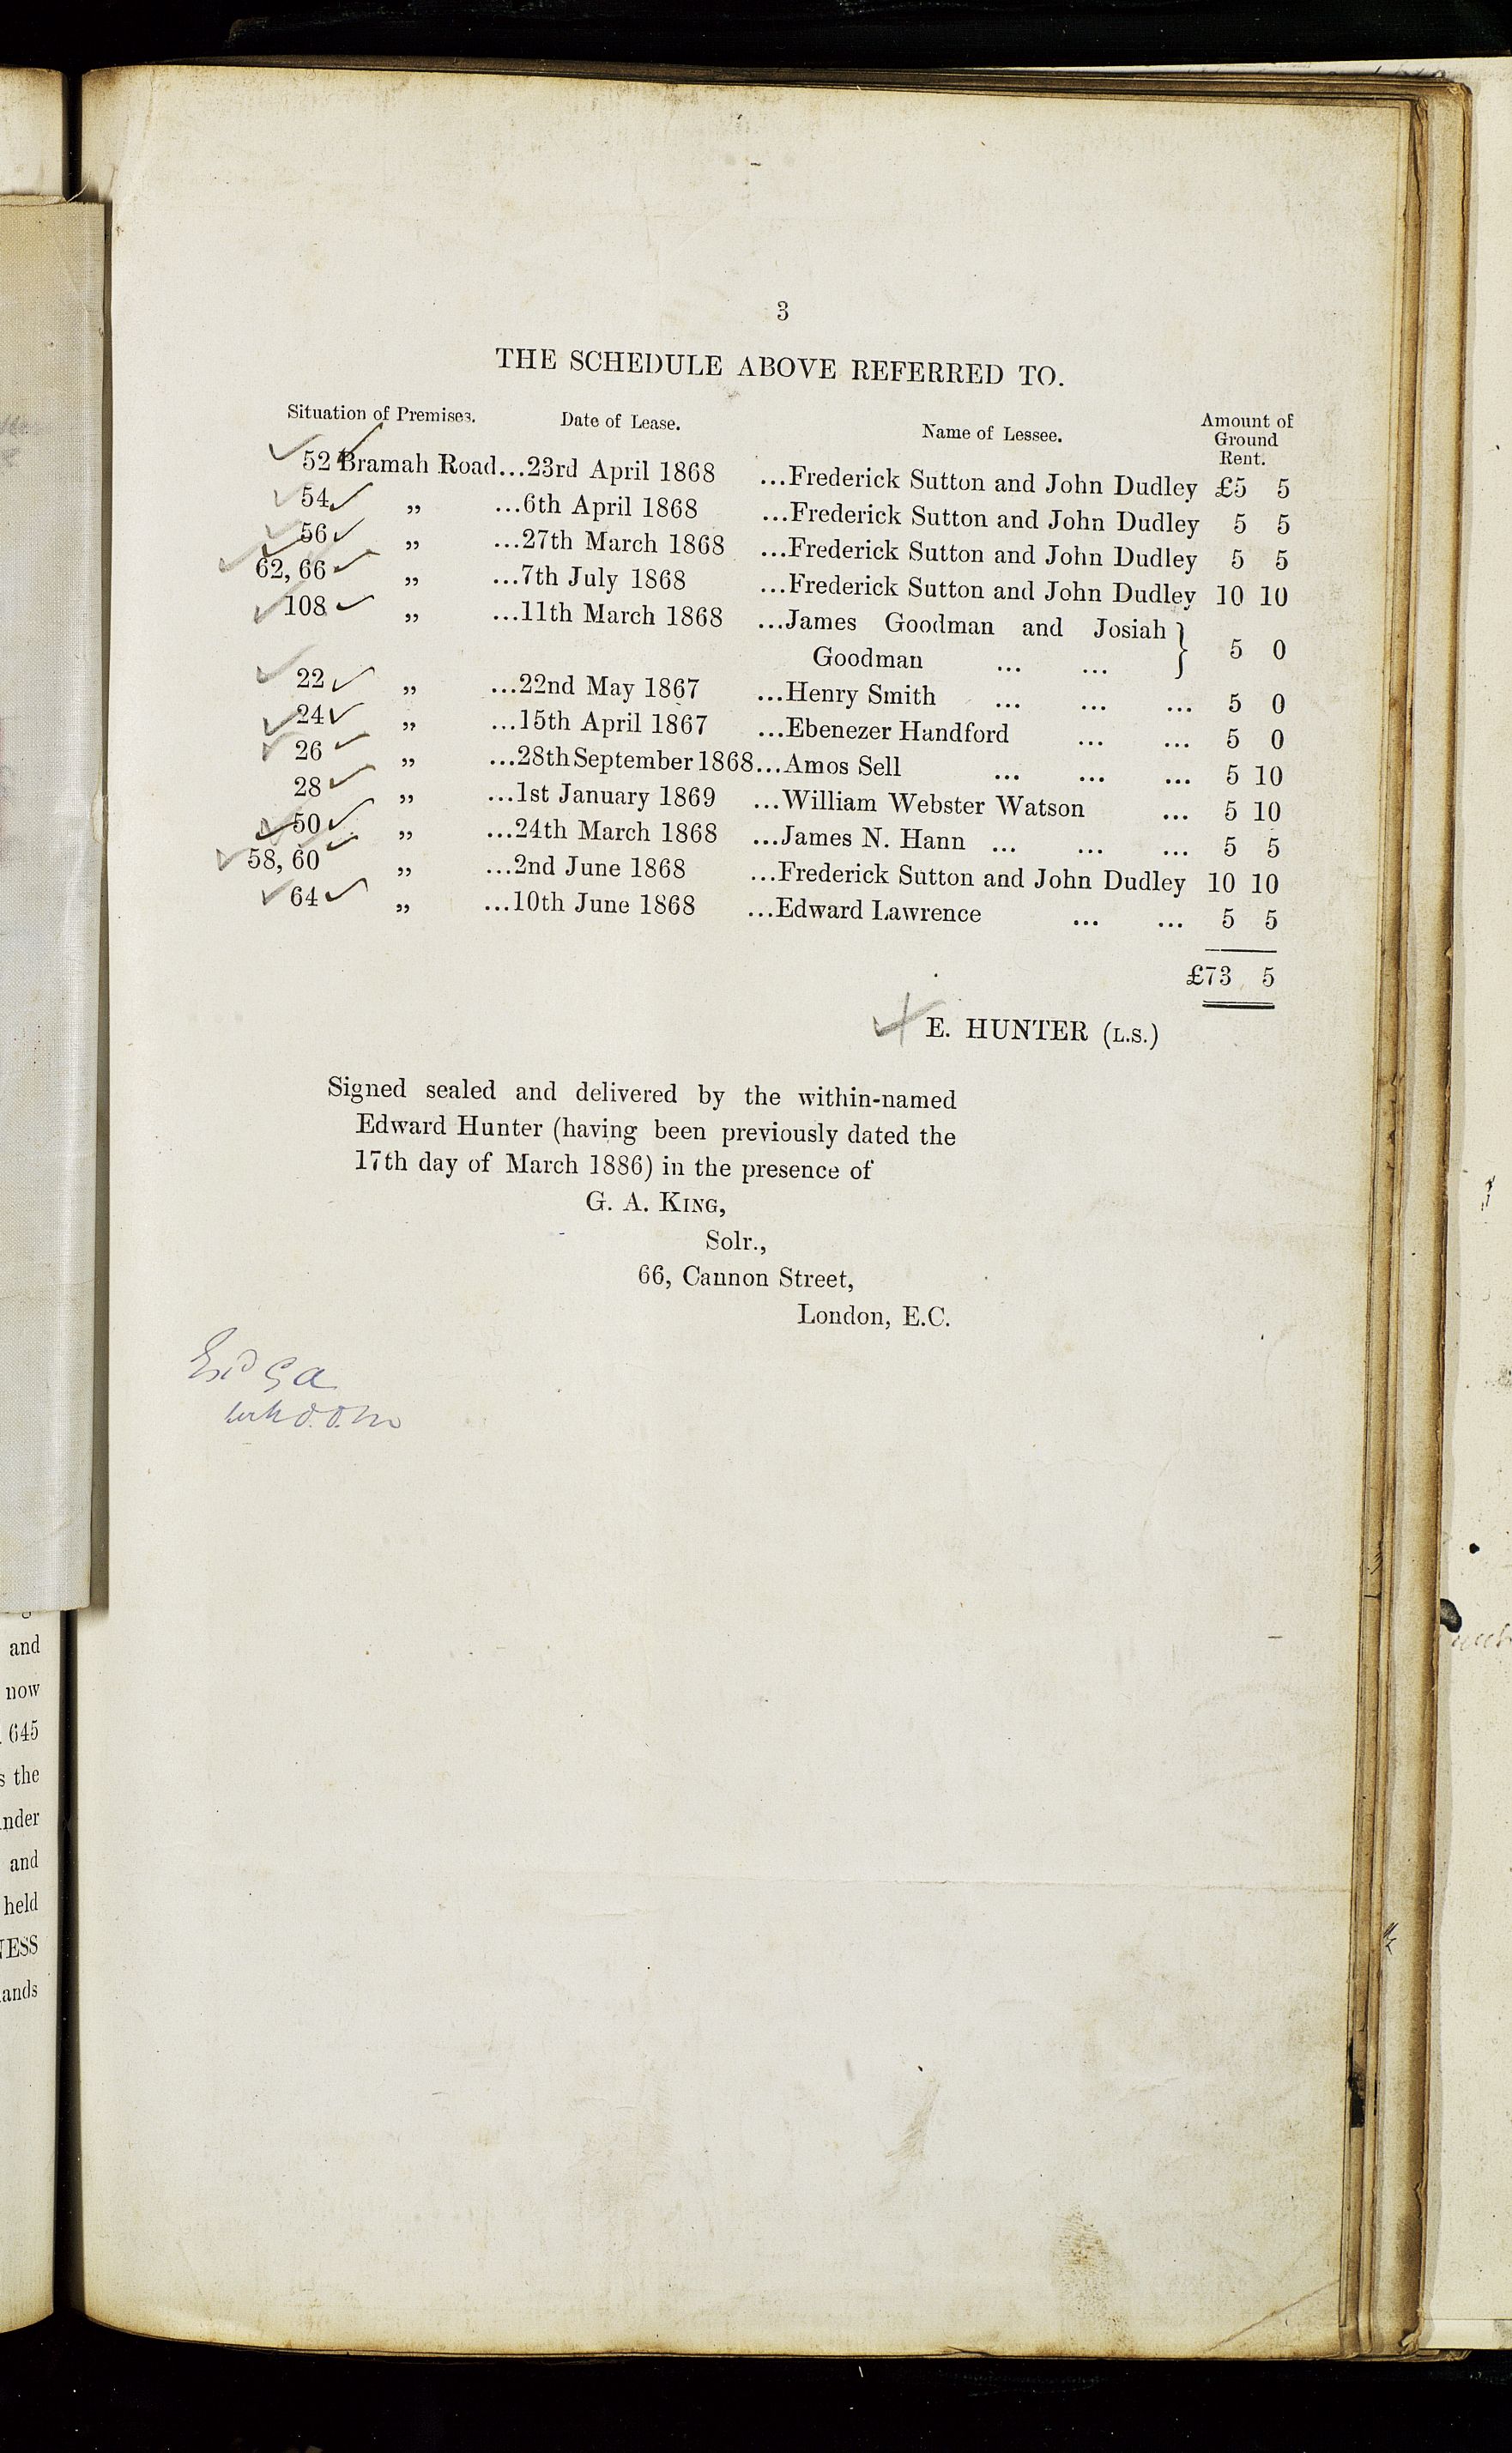 3
THE SCHEDULE ABOVE REFERRED TO.
Situation of Premises. Date of Lease. Name of Lessee. Amount of Ground Rent.
52 Bramah Road...23rd April 1868 ...Frederick Sutton and John Dudley £5 5
54 „ ...6th April 1868 ...Frederick Sutton and John Dudley 5 5
56 „ ...27th March 1868 ...Frederick Sutton and John Dudley 5 5
62, 66 „ ...7th July 1868 ...Frederick Sutton and John Dudley 10 10
108 „ ...11th March 1868 ...James Goodman and Josiah }
Goodman ... ... 5 0
22 „ ...22nd May 1867 ...Henry Smith ... ... ... 5 0
24 „ ...15th April 1867 ...Ebenezer Handford ... ... 5 0
26 „ ...28th September 1868...Amos Sell ... ... ... 5 10
28 „ ...1st January 1869 ...William Webster Watson ... 5 10
50 „ ...24th March 1868 ...James N. Hann ... ... ... 5 5
58, 60 „ ...2nd June 1868 ...Frederick Sutton and John Dudley 10 10
64 „ ...10th June 1868 ...Edward Lawrence ... ... 5 5
£73 5
E. HUNTER (L.S.)
Signed sealed and delivered by the within-named
Edward Hunter (having been previously dated the
17th day of March 1886) in the presence of
G. A. KING,
Solr.,
66, Cannon Street,
London, E.C.
and
now
645
the
and
held